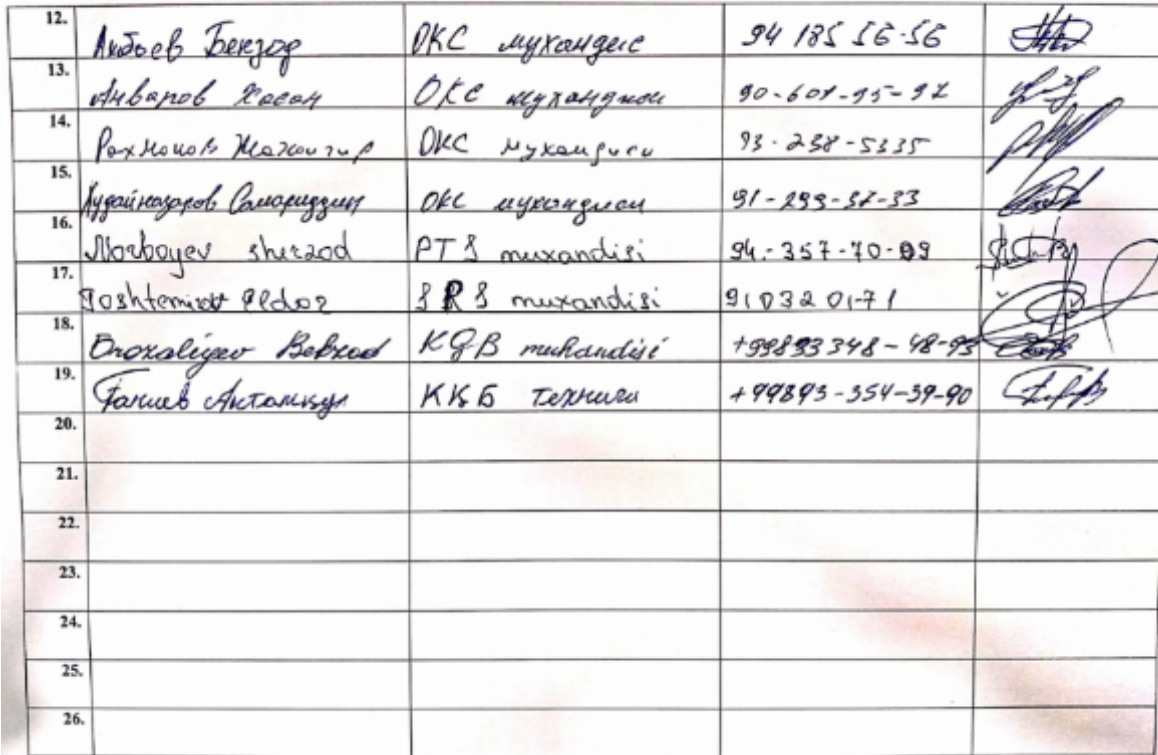 12. Бекзод ОКС мухандис 94 185 56-56
13. Анваров Хасан ОКС мухандиси 90-601-95-97
14. Рахмонов Жахонгир ОКС мухандиси 93-238-5335
15. Худайназаров Самариддин ОКС мухандиси 91-299-37-33
16. Norboyev sherzod PTS muxandisi 94-357-70-09
17. Toshtemirov Eldor SRS muxandisi 91 032 01-71
18. Bekzod muhandisi +99893 348-48-95
19. Ганиев ККБ техниги +99893-354-39-90
20.
21.
22.
23.
24.
25.
26.